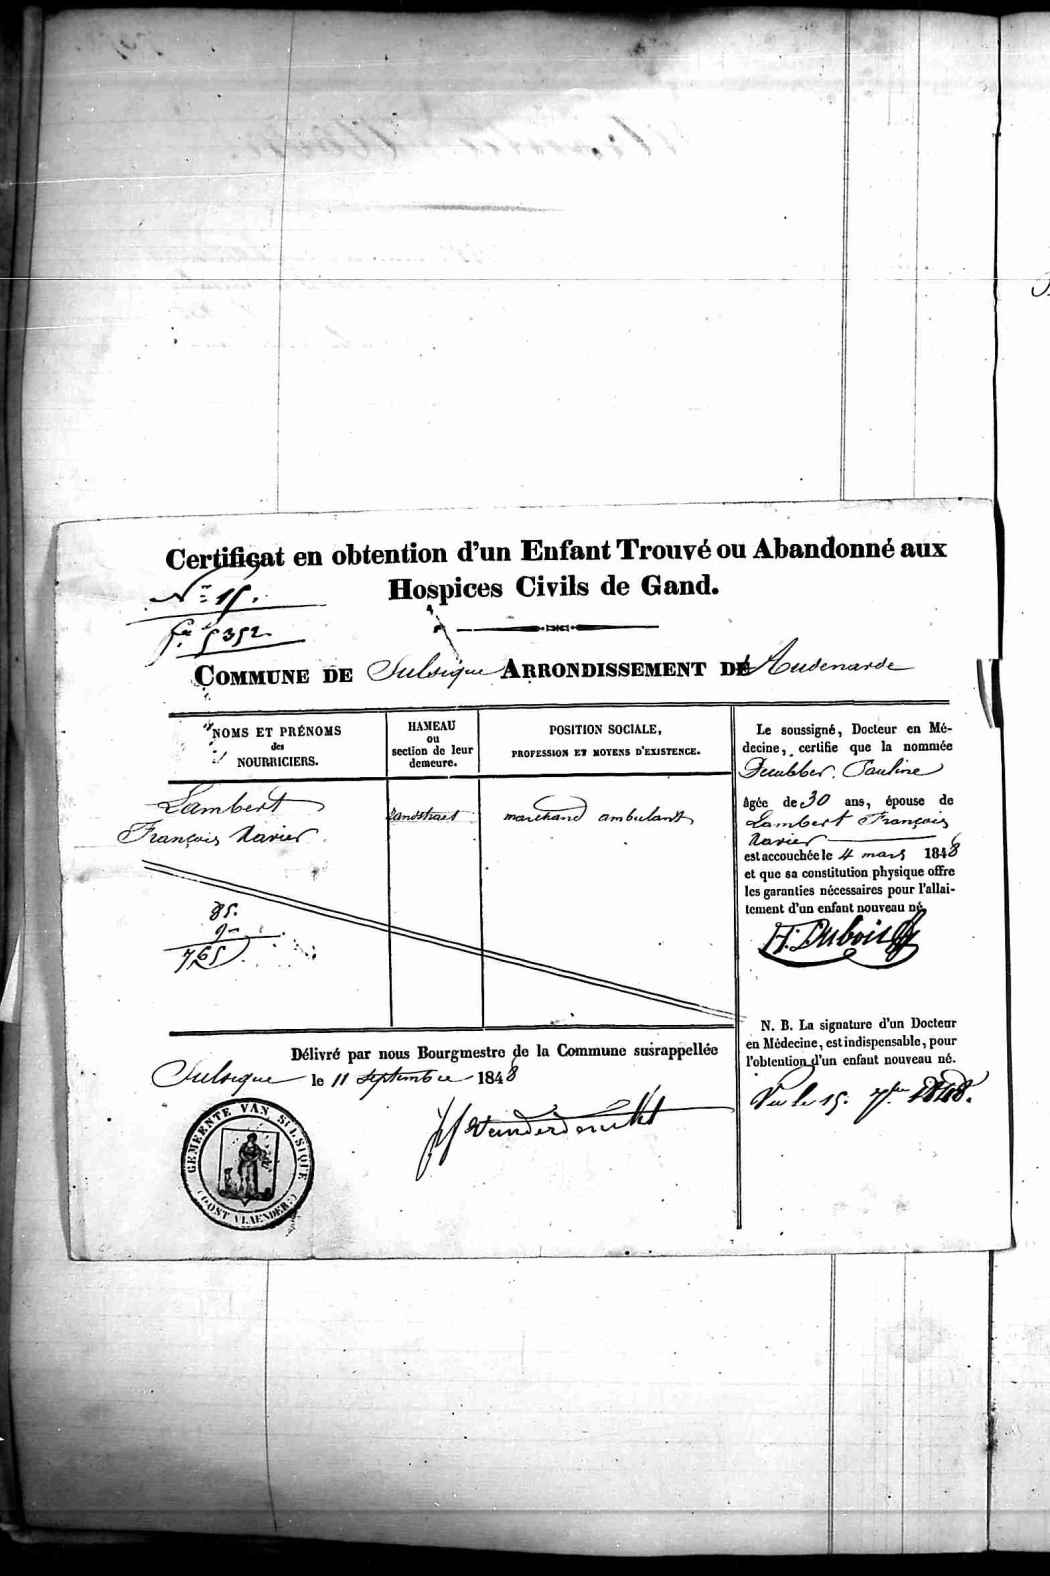 Certificat en obtention d'un Enfant Trouvé ou Abandonné aux
Hospices Civils de Gand.
N° 15.
5352
COMMUNE DE Sulsique ARRONDISSEMENT DE Audenarde
NOMS ET PRÉNOMS
des
NOURRICIERS.
HAMEAU
ou
section de leur
demeure.
POSITION SOCIALE,
PROFESSION ET MOYENS D'EXISTENCE.
Lambert
François Xavier
marchand ambulant
85.
9
765
Le soussigné, Docteur en Mé-
decine, certifie que la nommée
Pauline
âgée de 30 ans, épouse de
Lambert François
Xavier
est accouchée le 4 mars 1848
et que sa constitution physique offre
les garanties nécessaires pour l'allai-
tement d'un enfant nouveau né.
H. Dubois
N. B. La signature d'un Docteur
en Médecine, est indispensable, pour
l'obtention d'un enfant nouveau né.
Vu le 15. 7bre 1848.
Délivré par nous Bourgmestre de la Commune susrappellée
Sulsique le 11 Septembre 1848
Vanderdonckt
GEMEENTE VAN SULSIQUE
(OOST VLAENDEREN)